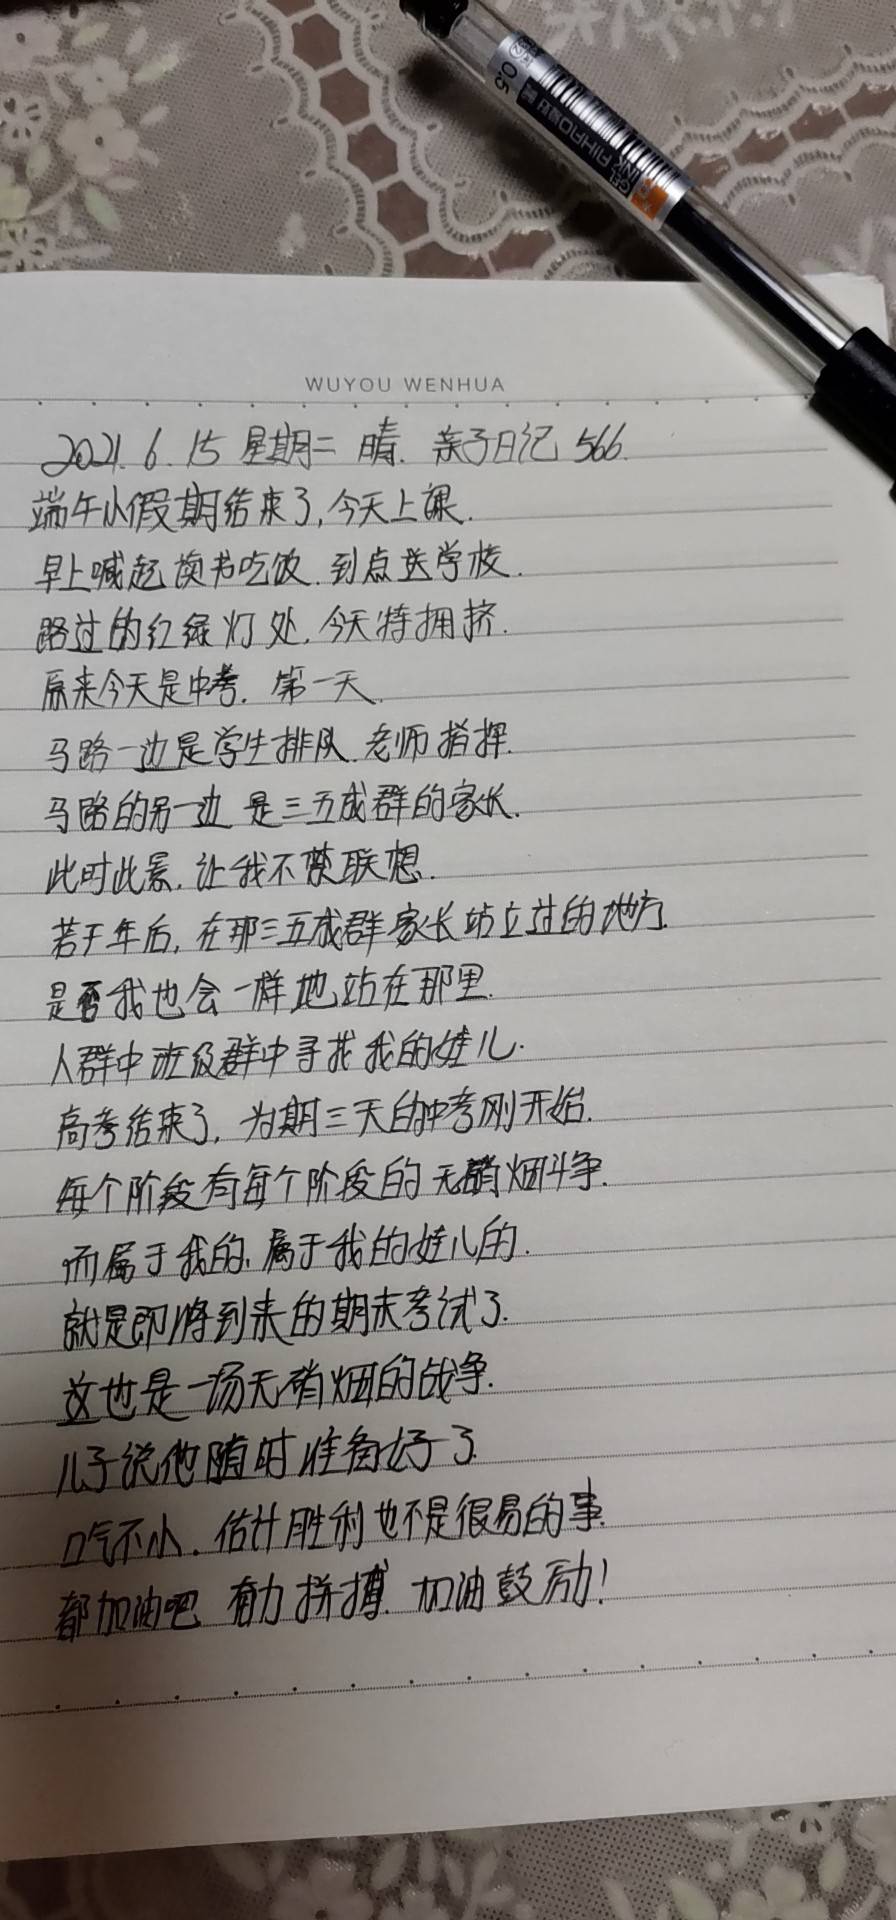 0.5
WUYOU WENHUA
2021.6.15 星期二 晴. 亲子日记 566.
端午小假期结束了,今天上课.
早上喊起读书吃饭.到点送学校.
路过的红绿灯处,今天特拥挤.
原来今天是中考.第一天.
马路一边是学生排队.老师指挥.
马路的另一边 是三五成群的家长.
此时此景,让我不禁联想.
若干年后,在那三五成群家长站立过的地方.
是否我也会一样地站在那里.
人群中班级群中寻找我的娃儿.
高考结束了,为期三天的中考刚开始.
每个阶段有每个阶段的无硝烟斗争.
而属于我的,属于我的娃儿的.
就是即将到来的期末考试了.
这也是一场无硝烟的战争.
儿子说他随时准备好了.
口气不小.估计胜利也不是很易的事.
都加油吧 奋力拼搏.加油鼓励!